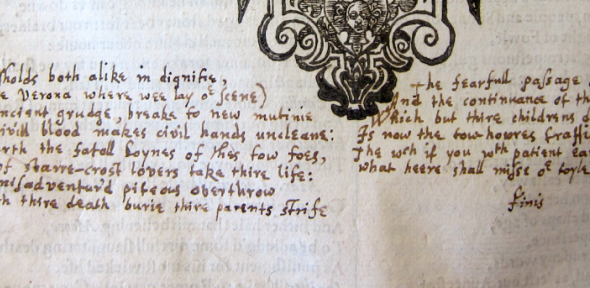 sholds both alike in dignitie,
e Verona where wee lay oᵉ scene)
ncient grudge, breake to new mutinie
ivill blood makes civil hands uncleane:
rth the fatall loynes of thes tow foes,
of starre-crost lovers take thire life:
misadventur'd piteous overthrow
h thire death burie thire parents strife
the fearfull passage
And the continuance of th
Which but thire childrens
Is now the tow-howres traffi
The wᶜh if you wᵗh patient ea
what heere shall misse oᵉ toyle
finis